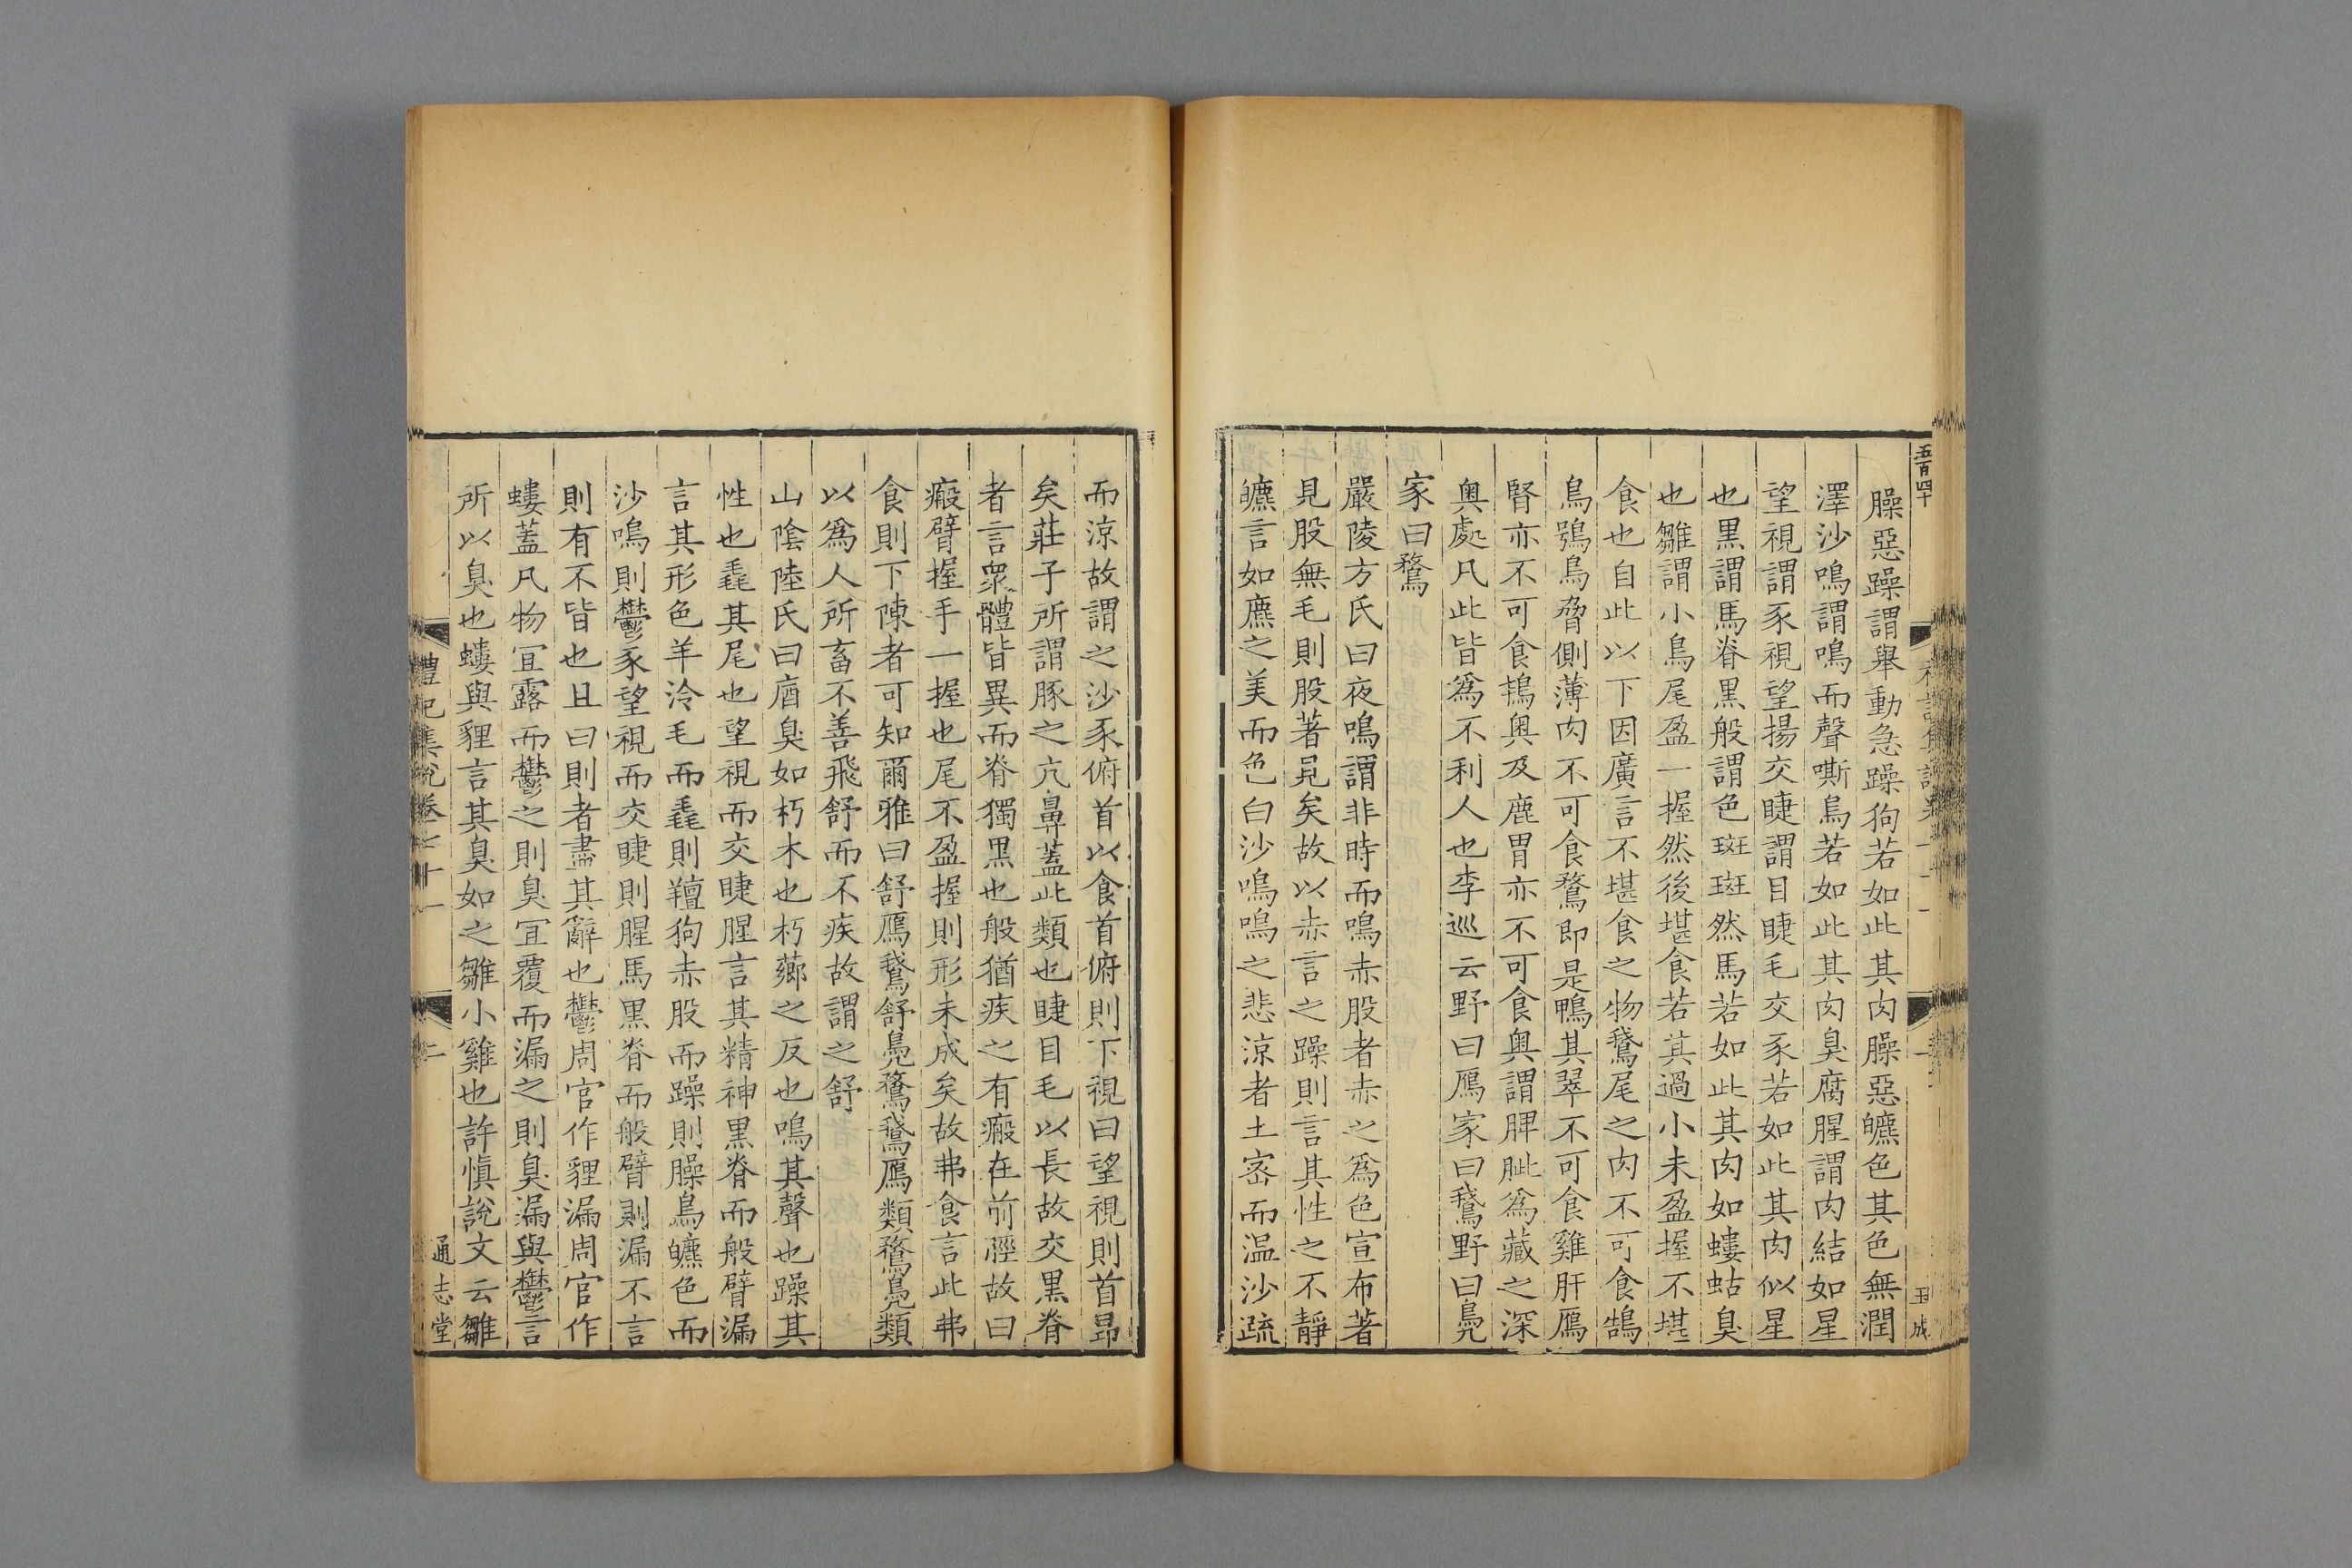 五百四十
臊惡躁謂舉動急躁狗若如此其肉臊惡皫色其色無潤
澤沙鳴謂鳴而聲嘶鳥若如此其肉臭腐腥謂肉結如星
望視謂豕視望揚交睫謂目睫毛交豕若如此其肉似星
也黒謂馬脊黒般謂色斑斑然馬若如此其肉如螻蛄臭
也雛謂小鳥尾盈一握然後堪食若其過小未盈握不堪
食也自此以下因廣言不堪食之物鵞尾之肉不可食鵠
鳥鴞鳥脅側薄肉不可食鶩即是鴨其翠不可食雞肝鴈
腎亦不可食鴇奥及鹿胃亦不可食奥謂脾肶爲藏之深
奥處凡此皆爲不利人也李巡云野曰鴈家曰鵞野曰鳧
家曰鶩
嚴陵方氏曰夜鳴謂非時而鳴赤股者赤之爲色宣布著
見股無毛則股著見矣故以赤言之躁則言其性之不靜
皫言如麃之美而色白沙鳴鳴之悲涼者土宻而温沙疏
而涼故謂之沙豕俯首以食首俯則下視曰望視則首昂
矣莊子所謂豚之亢鼻蓋此類也睫目毛以長故交黒脊
者言衆體皆異而脊獨黒也般猶疾之有瘢在前脛故曰
瘢臂握手一握也尾不盈握則形未成矣故弗食言此弗
食則下陳者可知爾雅曰舒鴈鵞舒鳧鶩鵞鴈類鶩鳧類
以爲人所畜不善飛舒而不疾故謂之舒
山隂陸氏曰庮臭如朽木也朽薌之反也鳴其聲也躁其
性也毳其尾也望視而交睫腥言其精神黒脊而般臂漏
言其形色羊泠毛而毳則羶狗赤股而躁則臊鳥皫色而
沙鳴則鬱豕望視而交睫則腥馬黒脊而般臂則漏不言
則有不皆也且曰則者盡其辭也鬱周官作貍漏周官作
螻蓋凡物宜露而鬱之則臭宜覆而漏之則臭漏與鬱言
所以臭也螻與貍言其臭如之雛小雞也許慎說文云雛
禮記集說卷七十一
二
通志堂